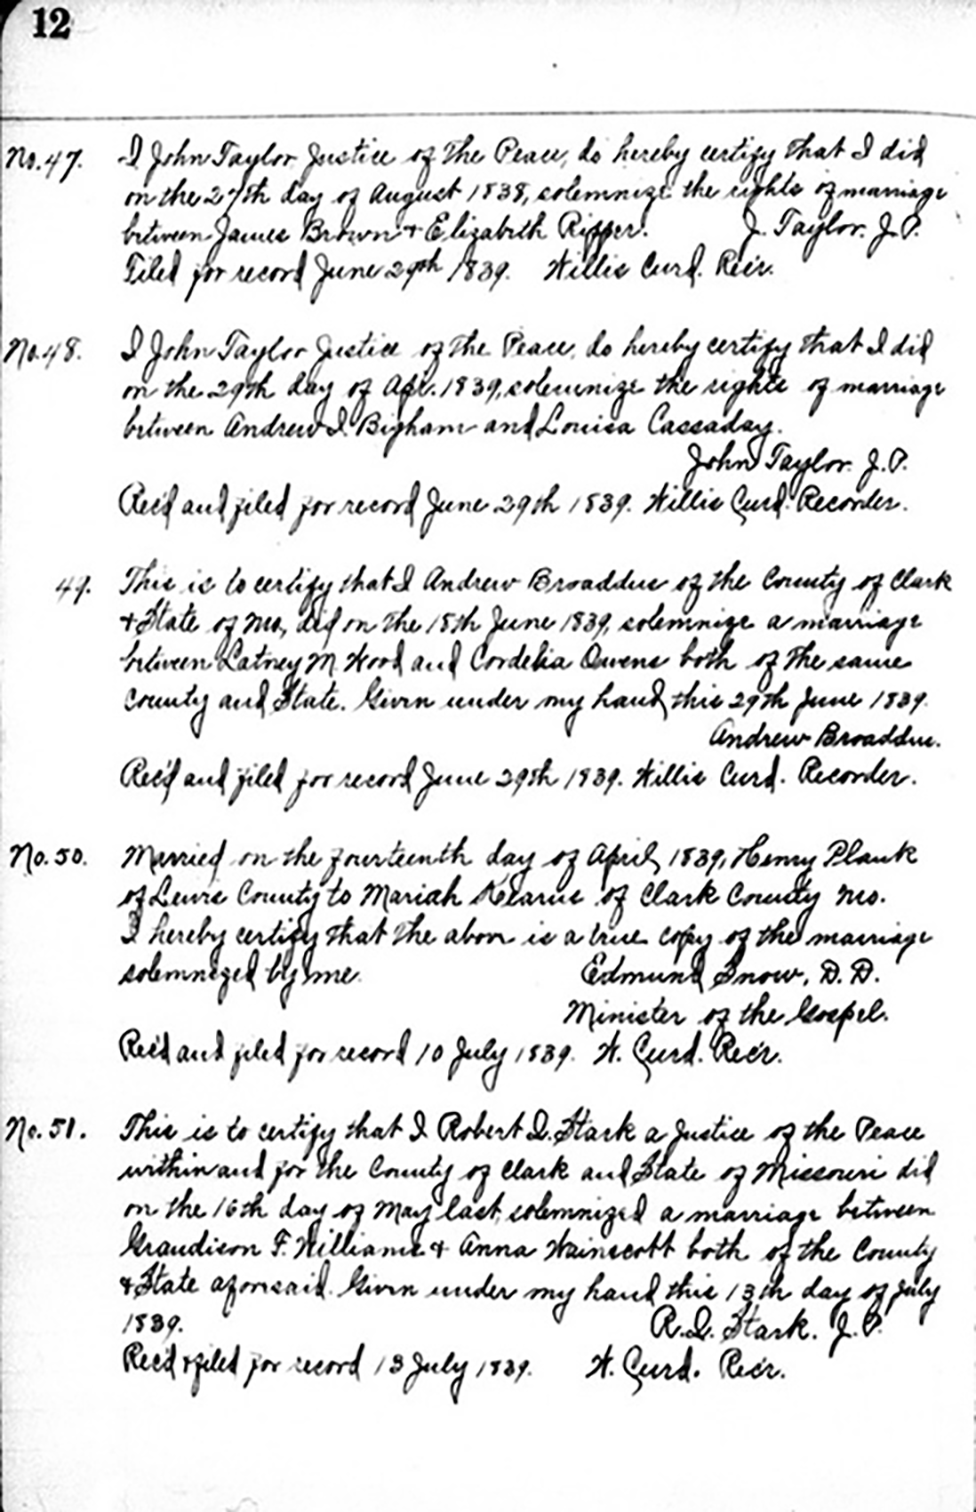 12
No. 47. I John Taylor Justice of the Peace, do hereby certify that I did
on the 27th day of August 1838, solemnize the rights of marriage
between James Brown + Elizabeth Ripper. J. Taylor. J.P.
Filed for record June 29th 1839. Willis Curd. Rec'r.
No. 48. I John Taylor Justice of the Peace, do hereby certify that I did
on the 29th day of Apr. 1839, solemnize the rights of marriage
between Andrew I. Bigham and Louisa Cassaday.
John Taylor. J.P.
Rec'd and filed for record June 29th 1839. Willis Curd. Recorder.
49. This is to certify that I Andrew Broaddus of the County of Clark
+ State of Mo, did on the 18th June 1839, solemnize a marriage
between Latney M. Wood and Cordelia Owens both of the same
County and State. Given under my hand this 29th June 1839.
Andrew Broaddus.
Rec'd and filed for record June 29th 1839. Willis Curd. Recorder.
No. 50. Married on the fourteenth day of April, 1839, Henry Plank
of Lewis County to Mariah of Clark County Mo.
I hereby certify that the above is a true copy of the marriage
solemnized by me. Edmund Snow, D.D.
Minister of the Gospel.
Rec'd and filed for record 10 July 1839. W. Curd. Rec'r.
No. 51. This is to certify that I Robert D. Stark a Justice of the Peace
within and for the County of Clark and State of Missouri did
on the 16th day of May last, solemnized a marriage between
Graudison F. Williams + Anna Wainscott both of the County
+ State aforesaid. Given under my hand this 13th day of July
1839. R.D. Stark. J.P.
Rec'd + filed for record 13 July 1839. W. Curd. Rec'r.